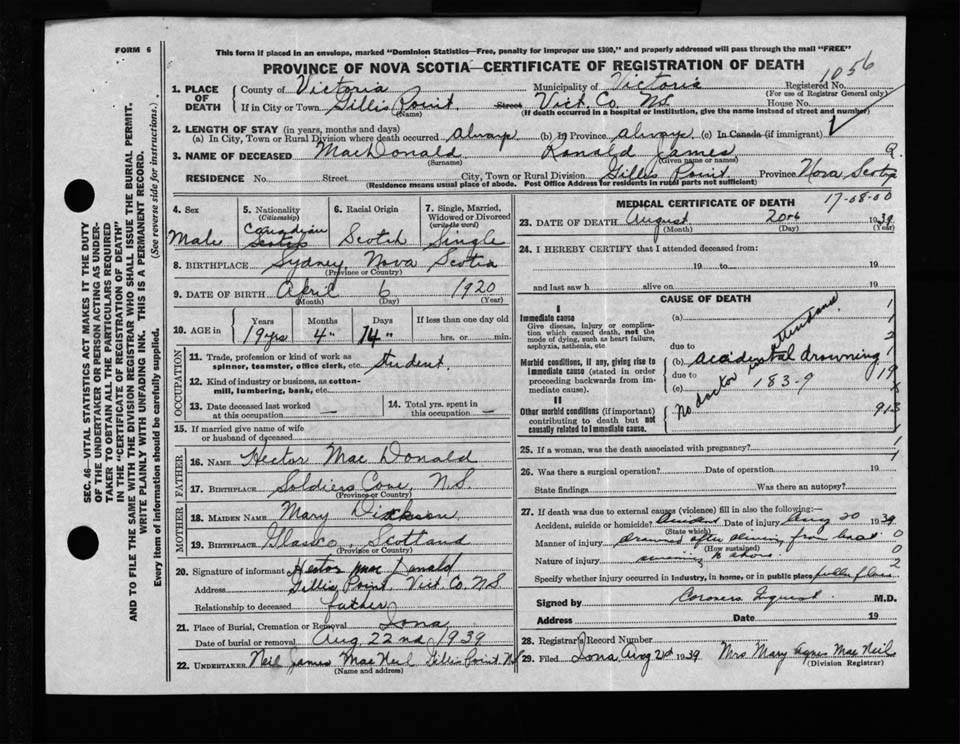 FORM 6
This form if placed in an envelope, marked "Dominion Statistics—Free, penalty for improper use $300," and properly addressed will pass through the mail "FREE"
PROVINCE OF NOVA SCOTIA—CERTIFICATE OF REGISTRATION OF DEATH
1056
1. PLACE OF DEATH
County of Victoria Municipality of Victoria Registered No.
(For use of Registrar General only)
If in City or Town Gillis Point Street Vict. Co. N.S. House No.
(Name) (If death occurred in a hospital or institution, give the name instead of street and number)
2. LENGTH OF STAY (in years, months and days)
(a) In City, Town or Rural Division where death occurred always (b) In Province always (c) In Canada (if immigrant)
3. NAME OF DECEASED MacDonald Ronald James
(Surname) (Given name or names)
RESIDENCE No. Street City, Town or Rural Division Gillis Point Province Nova Scotia
(Residence means usual place of abode. Post Office Address for residents in rural parts not sufficient)
4. Sex
Male
5. Nationality
(Citizenship)
Canadian
6. Racial Origin
Scotch
7. Single, Married, Widowed or Divorced
(write the word)
Single
8. BIRTHPLACE Sydney, Nova Scotia
(Province or Country)
9. DATE OF BIRTH April 6 1920
(Month) (Day) (Year)
10. AGE in
Years Months Days If less than one day old
19 yrs 4 14 hrs. or min.
OCCUPATION
11. Trade, profession or kind of work as spinner, teamster, office clerk, etc. Student
12. Kind of industry or business, as cotton-mill, lumbering, bank, etc.
13. Date deceased last worked at this occupation —
14. Total yrs. spent in this occupation —
15. If married give name of wife or husband of deceased
FATHER
16. NAME Hector MacDonald
17. BIRTHPLACE Soldiers Cove, N.S.
(Province or Country)
MOTHER
18. MAIDEN NAME Mary Dickson
19. BIRTHPLACE Scotland
(Province or Country)
20. Signature of informant Hector MacDonald
Address Gillis Point, Vict. Co. N.S.
Relationship to deceased father
21. Place of Burial, Cremation or Removal Iona
Date of burial or removal Aug 22nd 1939
22. UNDERTAKER Neil James MacNeil Gillis Point N.S.
(Name and address)
MEDICAL CERTIFICATE OF DEATH 17-08-00
23. DATE OF DEATH August 20th 1939
(Month) (Day) (Year)
24. I HEREBY CERTIFY that I attended deceased from:
19 to 19
and last saw h alive on 19
CAUSE OF DEATH
I
Immediate cause
Give disease, injury or complication which caused death, not the mode of dying, such as heart failure, asphyxia, asthenia, etc
(a)
due to
Morbid conditions, if any, giving rise to immediate cause (stated in order proceeding backwards from immediate cause).
(b) accidental drowning
due to
(c) 183-9
No doctor in attendance
II
Other morbid conditions (if important) contributing to death but not causally related to immediate cause.
25. If a woman, was the death associated with pregnancy?
26. Was there a surgical operation? Date of operation 19
State findings Was there an autopsy?
27. If death was due to external causes (violence) fill in also the following:—
Accident, suicide or homicide? Accident Date of injury Aug 20 1939
(State which)
Manner of injury drowned after from boat
(How sustained)
Nature of injury
Specify whether injury occurred in industry, in home, or in public place public place
Signed by Coroners Inquest M.D.
Address Date 19
28. Registrar's Record Number
29. Filed Iona, Aug 1939 Mrs Mary Agnes MacNeil
(Division Registrar)
SEC. 46—VITAL STATISTICS ACT MAKES IT THE DUTY
OF THE UNDERTAKER OR PERSON ACTING AS UNDER-
TAKER TO OBTAIN ALL THE PARTICULARS REQUIRED
IN THE "CERTIFICATE OF REGISTRATION OF DEATH"
AND TO FILE THE SAME WITH THE DIVISION REGISTRAR WHO SHALL ISSUE THE BURIAL PERMIT.
WRITE PLAINLY WITH UNFADING INK. THIS IS A PERMANENT RECORD.
Every item of information should be carefully supplied. (See reverse side for instructions.)